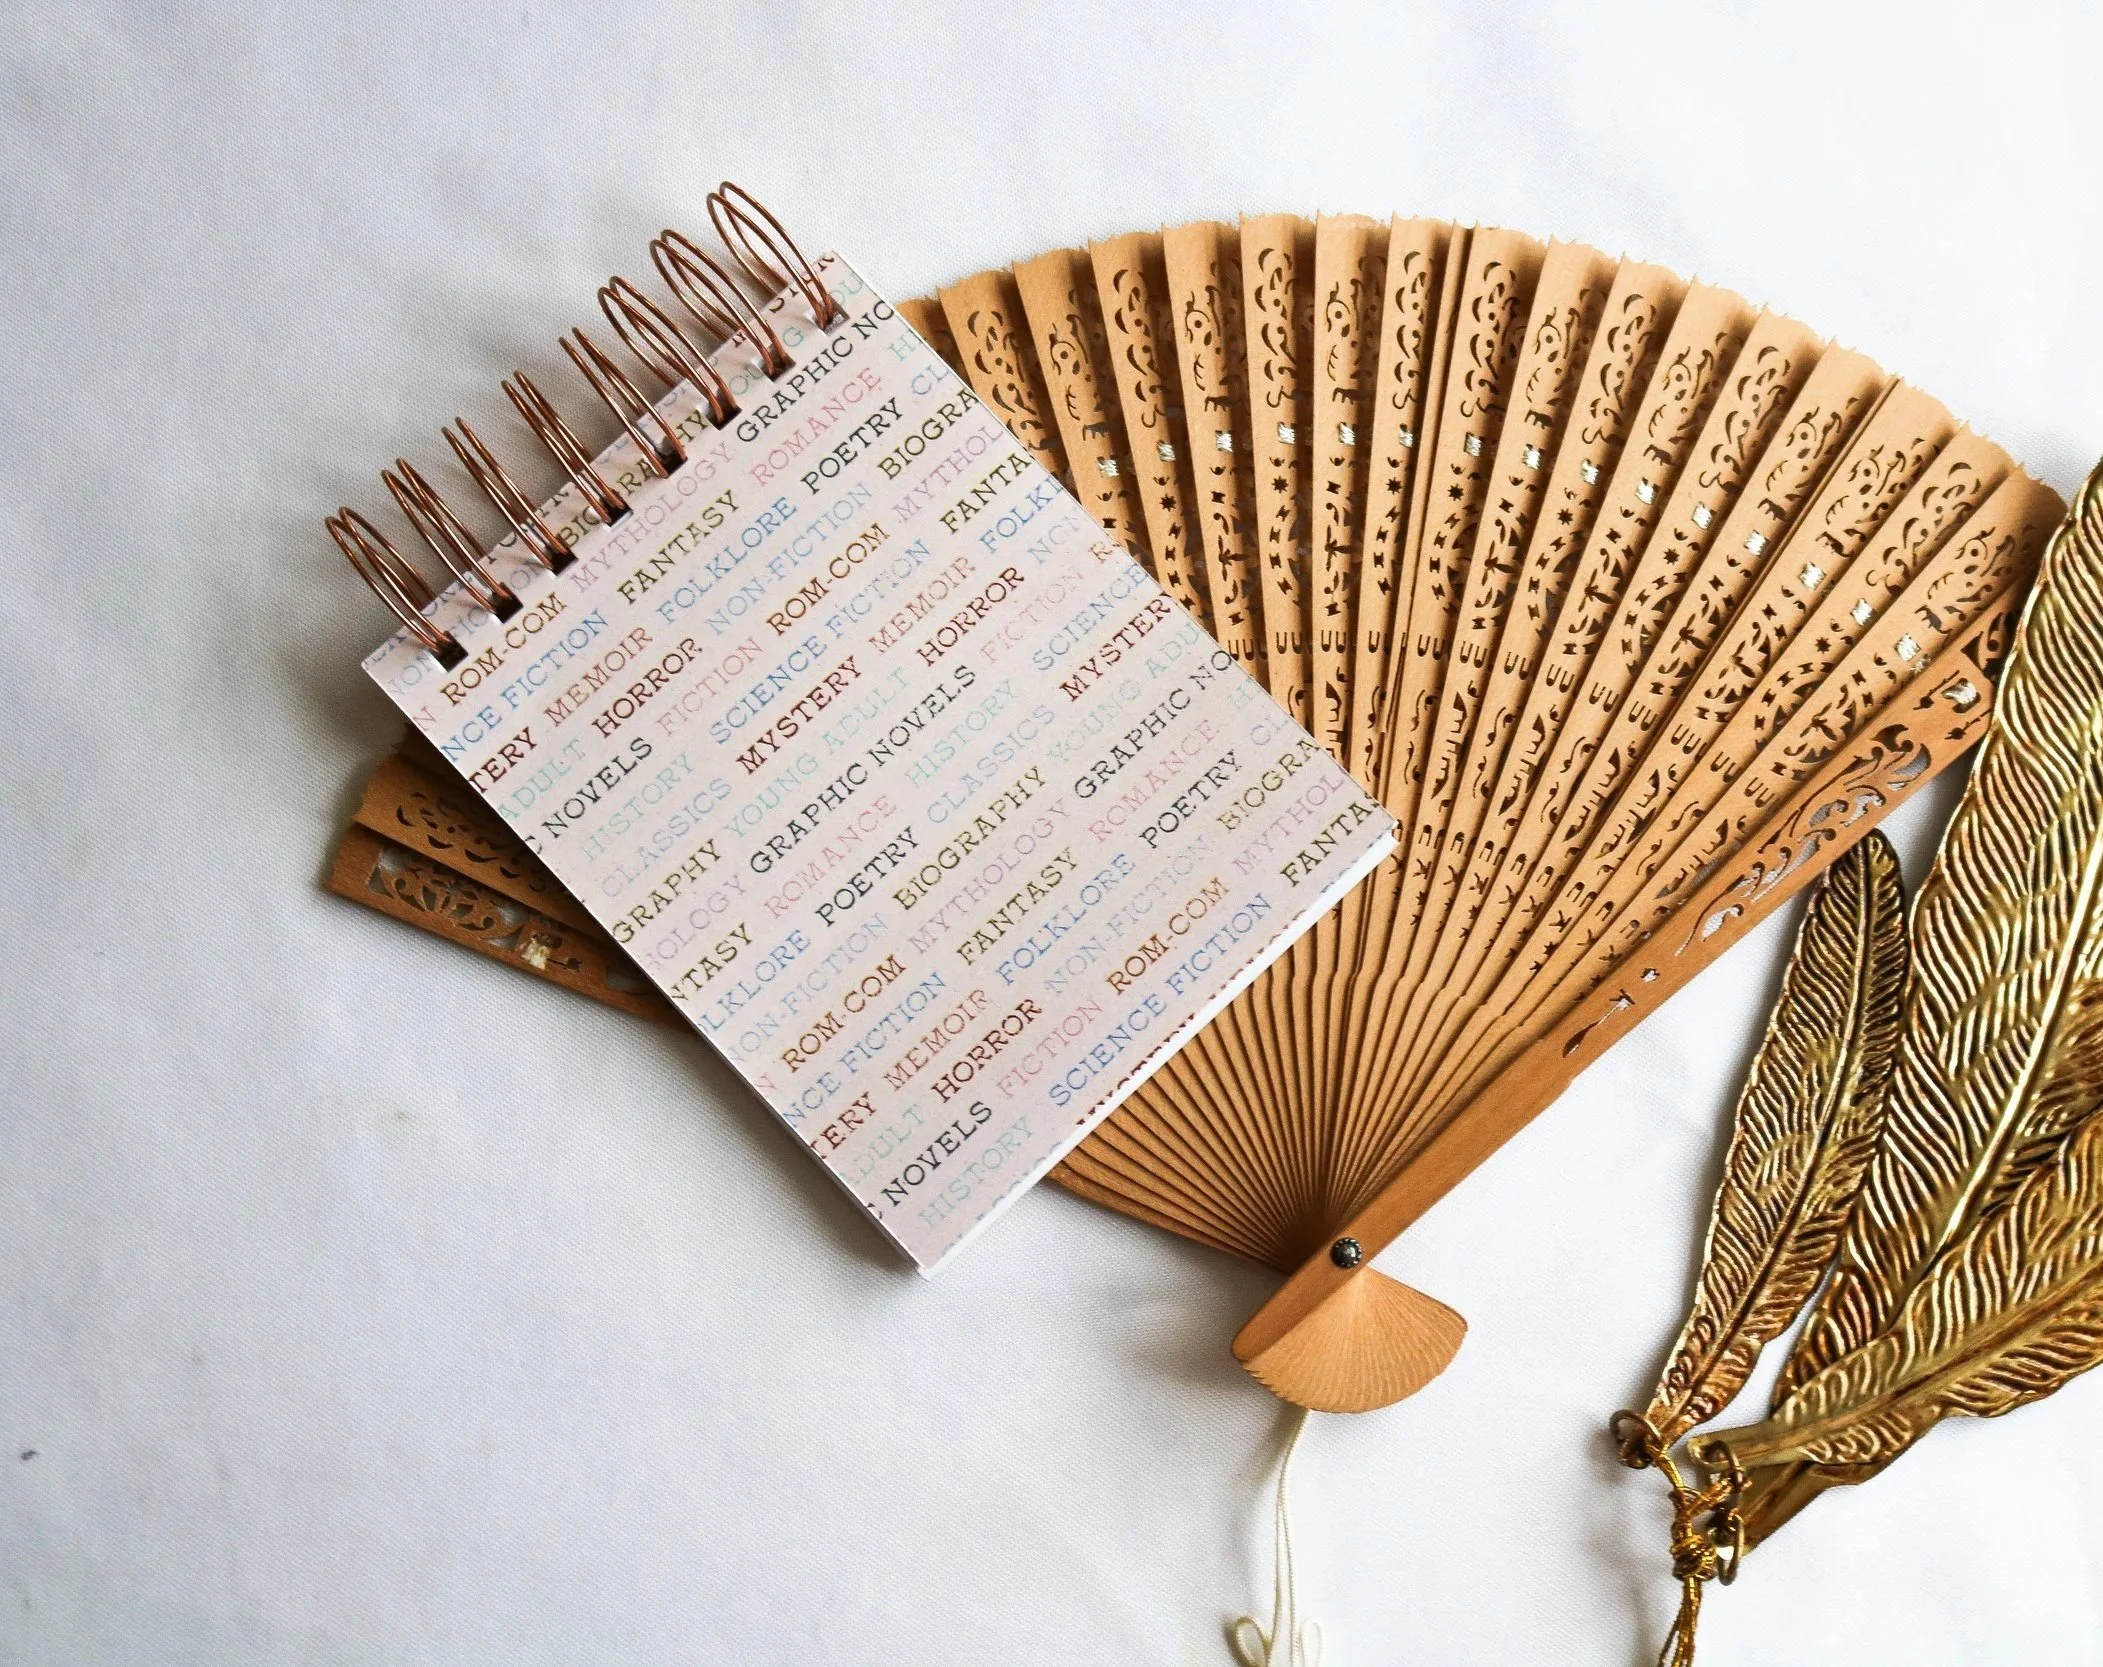 BIOGRAPHY YOUNG
ROM-COM MYTHOLOGY GRAPHIC NO
NCE FICTION FANTASY ROMANCE H
TERY MEMOIR FOLKLORE POETRY CL
ADULT HORROR NON-FICTION BIOGRA
C NOVELS FICTION ROM-COM MYTHOL
HISTORY SCIENCE FICTION FANTA
CLASSICS MYSTERY MEMOIR FOLKL
GRAPHY YOUNG ADULT HORROR NON
OLOGY GRAPHIC NOVELS FICTION R
NTASY ROMANCE HISTORY SCIENCE
LKLORE POETRY CLASSICS MYSTER
NON-FICTION BIOGRAPHY YOUNG ADU
N ROM-COM MYTHOLOGY GRAPHIC NO
NCE FICTION FANTASY ROMANCE H
TERY MEMOIR FOLKLORE POETRY CL
ADULT HORROR NON-FICTION BIOGRA
C NOVELS FICTION ROM-COM MYTHOL
HISTORY SCIENCE FICTION FANTA